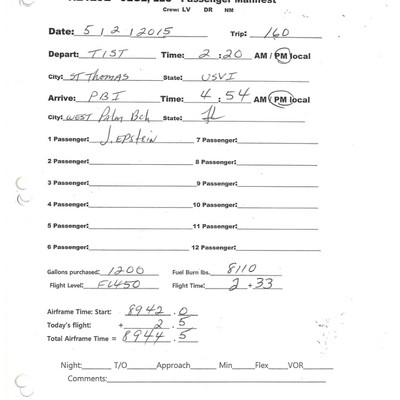 Passenger Manifest
Crew: LV DR NM
Date: 5/2/2015 Trip: 160
Depart: TIST Time: 2:20 AM / PM local
City: ST Thomas State: USVI
Arrive: PBI Time: 4:54 AM / PM local
City: WEST Palm Bch State: FL
1 Passenger: J. EPstein 7 Passenger:
2 Passenger: 8 Passenger:
3 Passenger: 9 Passenger:
4 Passenger: 10 Passenger:
5 Passenger: 11 Passenger:
6 Passenger: 12 Passenger:
Gallons purchased: 1200 Fuel Burn lbs. 8110
Flight Level: FL450 Flight Time: 2 + 33
Airframe Time: Start: 8942.0
Today's flight: + 2.5
Total Airframe Time = 8944.5
Night: T/O Approach Min Flex VOR
Comments: